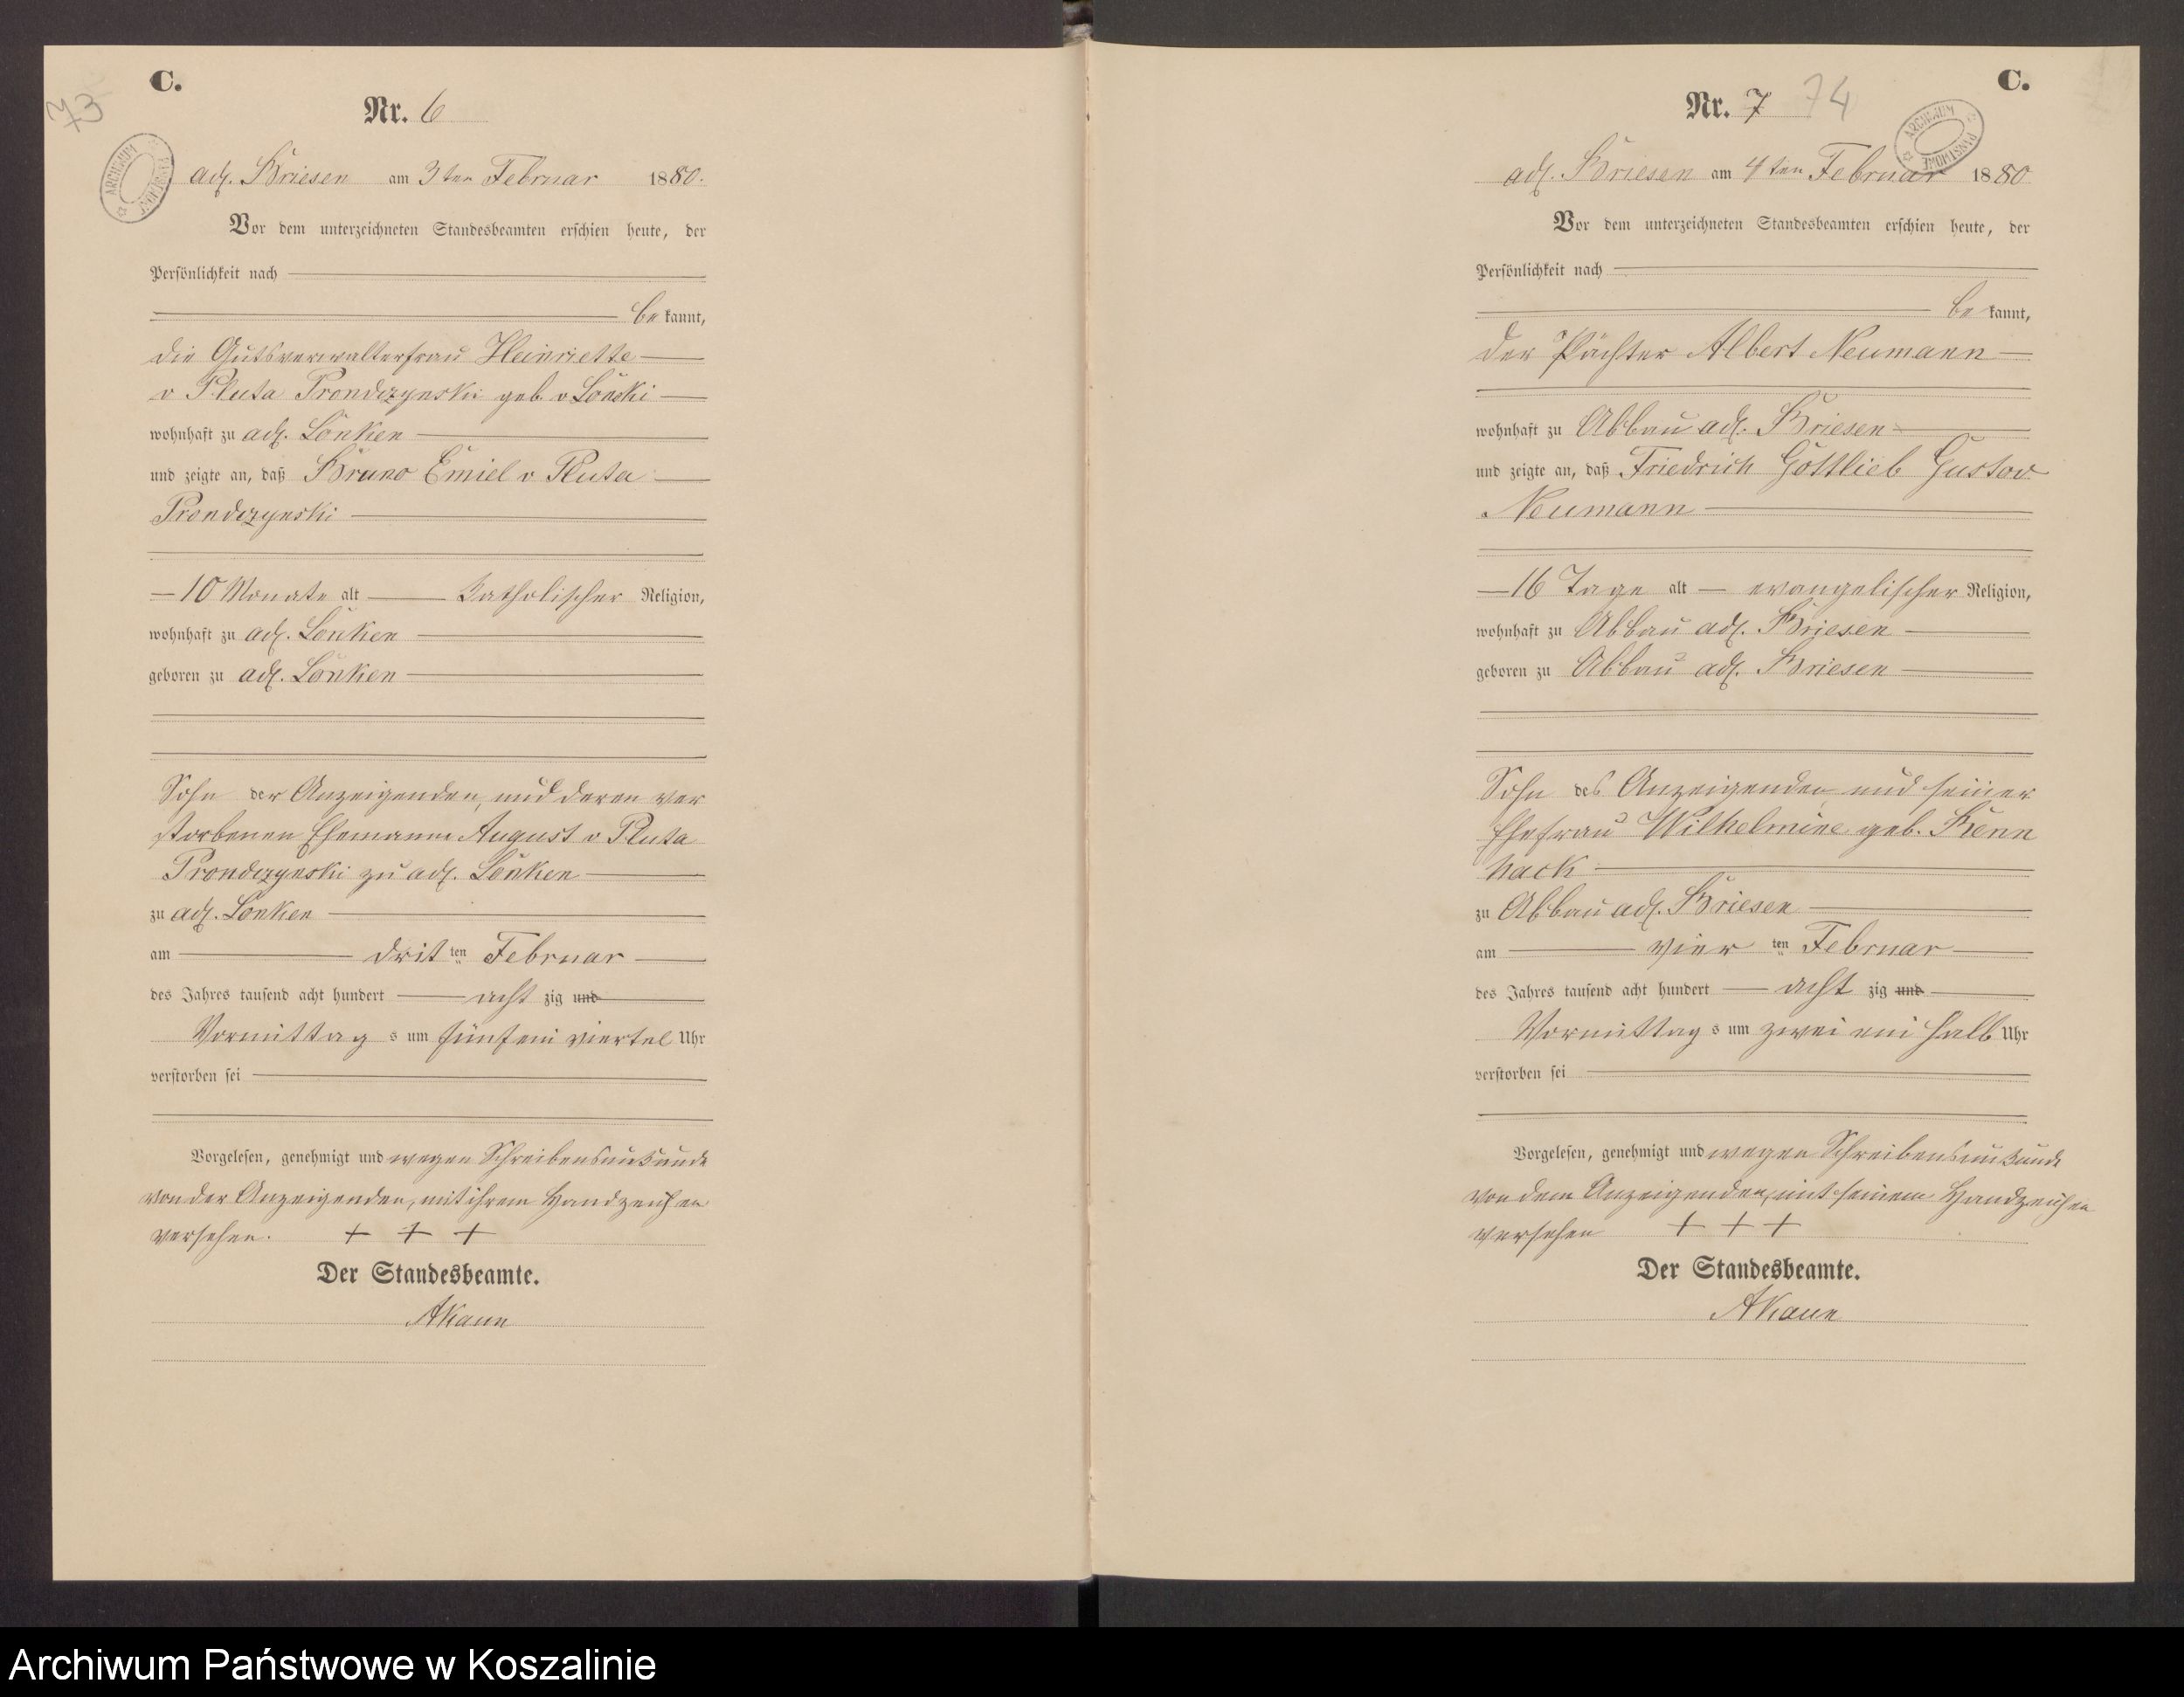 73
C.
Nr. 6
ARCHIWUM PAŃSTWOWE
adl. Briesen am 3ten Februar 1880.
Vor dem unterzeichneten Standesbeamten erschien heute, der
Persönlichkeit nach
bekannt,
die Gutsverwalterfrau Henriette
v Pluta Prondzynski geb. v Lonski
wohnhaft zu adl. Lonken
und zeigte an, daß Bruno Emiel v Pluta
Prondzynski
10 Monate alt katholischer Religion,
wohnhaft zu adl. Lonken
geboren zu adl. Lonken
Sohn der Anzeigenden, und deren ver
storbenen Ehemann August v Pluta
Prondzynski zu adl. Lonken
zu adl. Lonken
am dritten Februar
des Jahres tausend acht hundert acht zig und
Vormittags um fünf ein viertel Uhr
verstorben sei
Vorgelesen, genehmigt und wegen Schreibensunkunde
von der Anzeigenden, mit ihrem Handzeichen
versehen. + + +
Der Standesbeamte.
C.
Nr. 7 74
ARCHIWUM PAŃSTWOWE
adl. Briesen am 4ten Februar 1880
Vor dem unterzeichneten Standesbeamten erschien heute, der
Persönlichkeit nach
bekannt,
der Pächter Albert Neumann
wohnhaft zu Abbau adl. Briesen
und zeigte an, daß Friedrich Gottlieb Gustav
Neumann
16 Tage alt evangelischer Religion,
wohnhaft zu Abbau adl. Briesen
geboren zu Abbau adl. Briesen
Sohn des Anzeigenden und seiner
Ehefrau Wilhelmine geb.
zu Abbau adl. Briesen
am vierten Februar
des Jahres tausend acht hundert acht zig und
Vormittags um zwei ein halb Uhr
verstorben sei
Vorgelesen, genehmigt und wegen Schreibensunkunde
von dem Anzeigenden, mit seinem Handzeichen
versehen + + +
Der Standesbeamte.
Archiwum Państwowe w Koszalinie